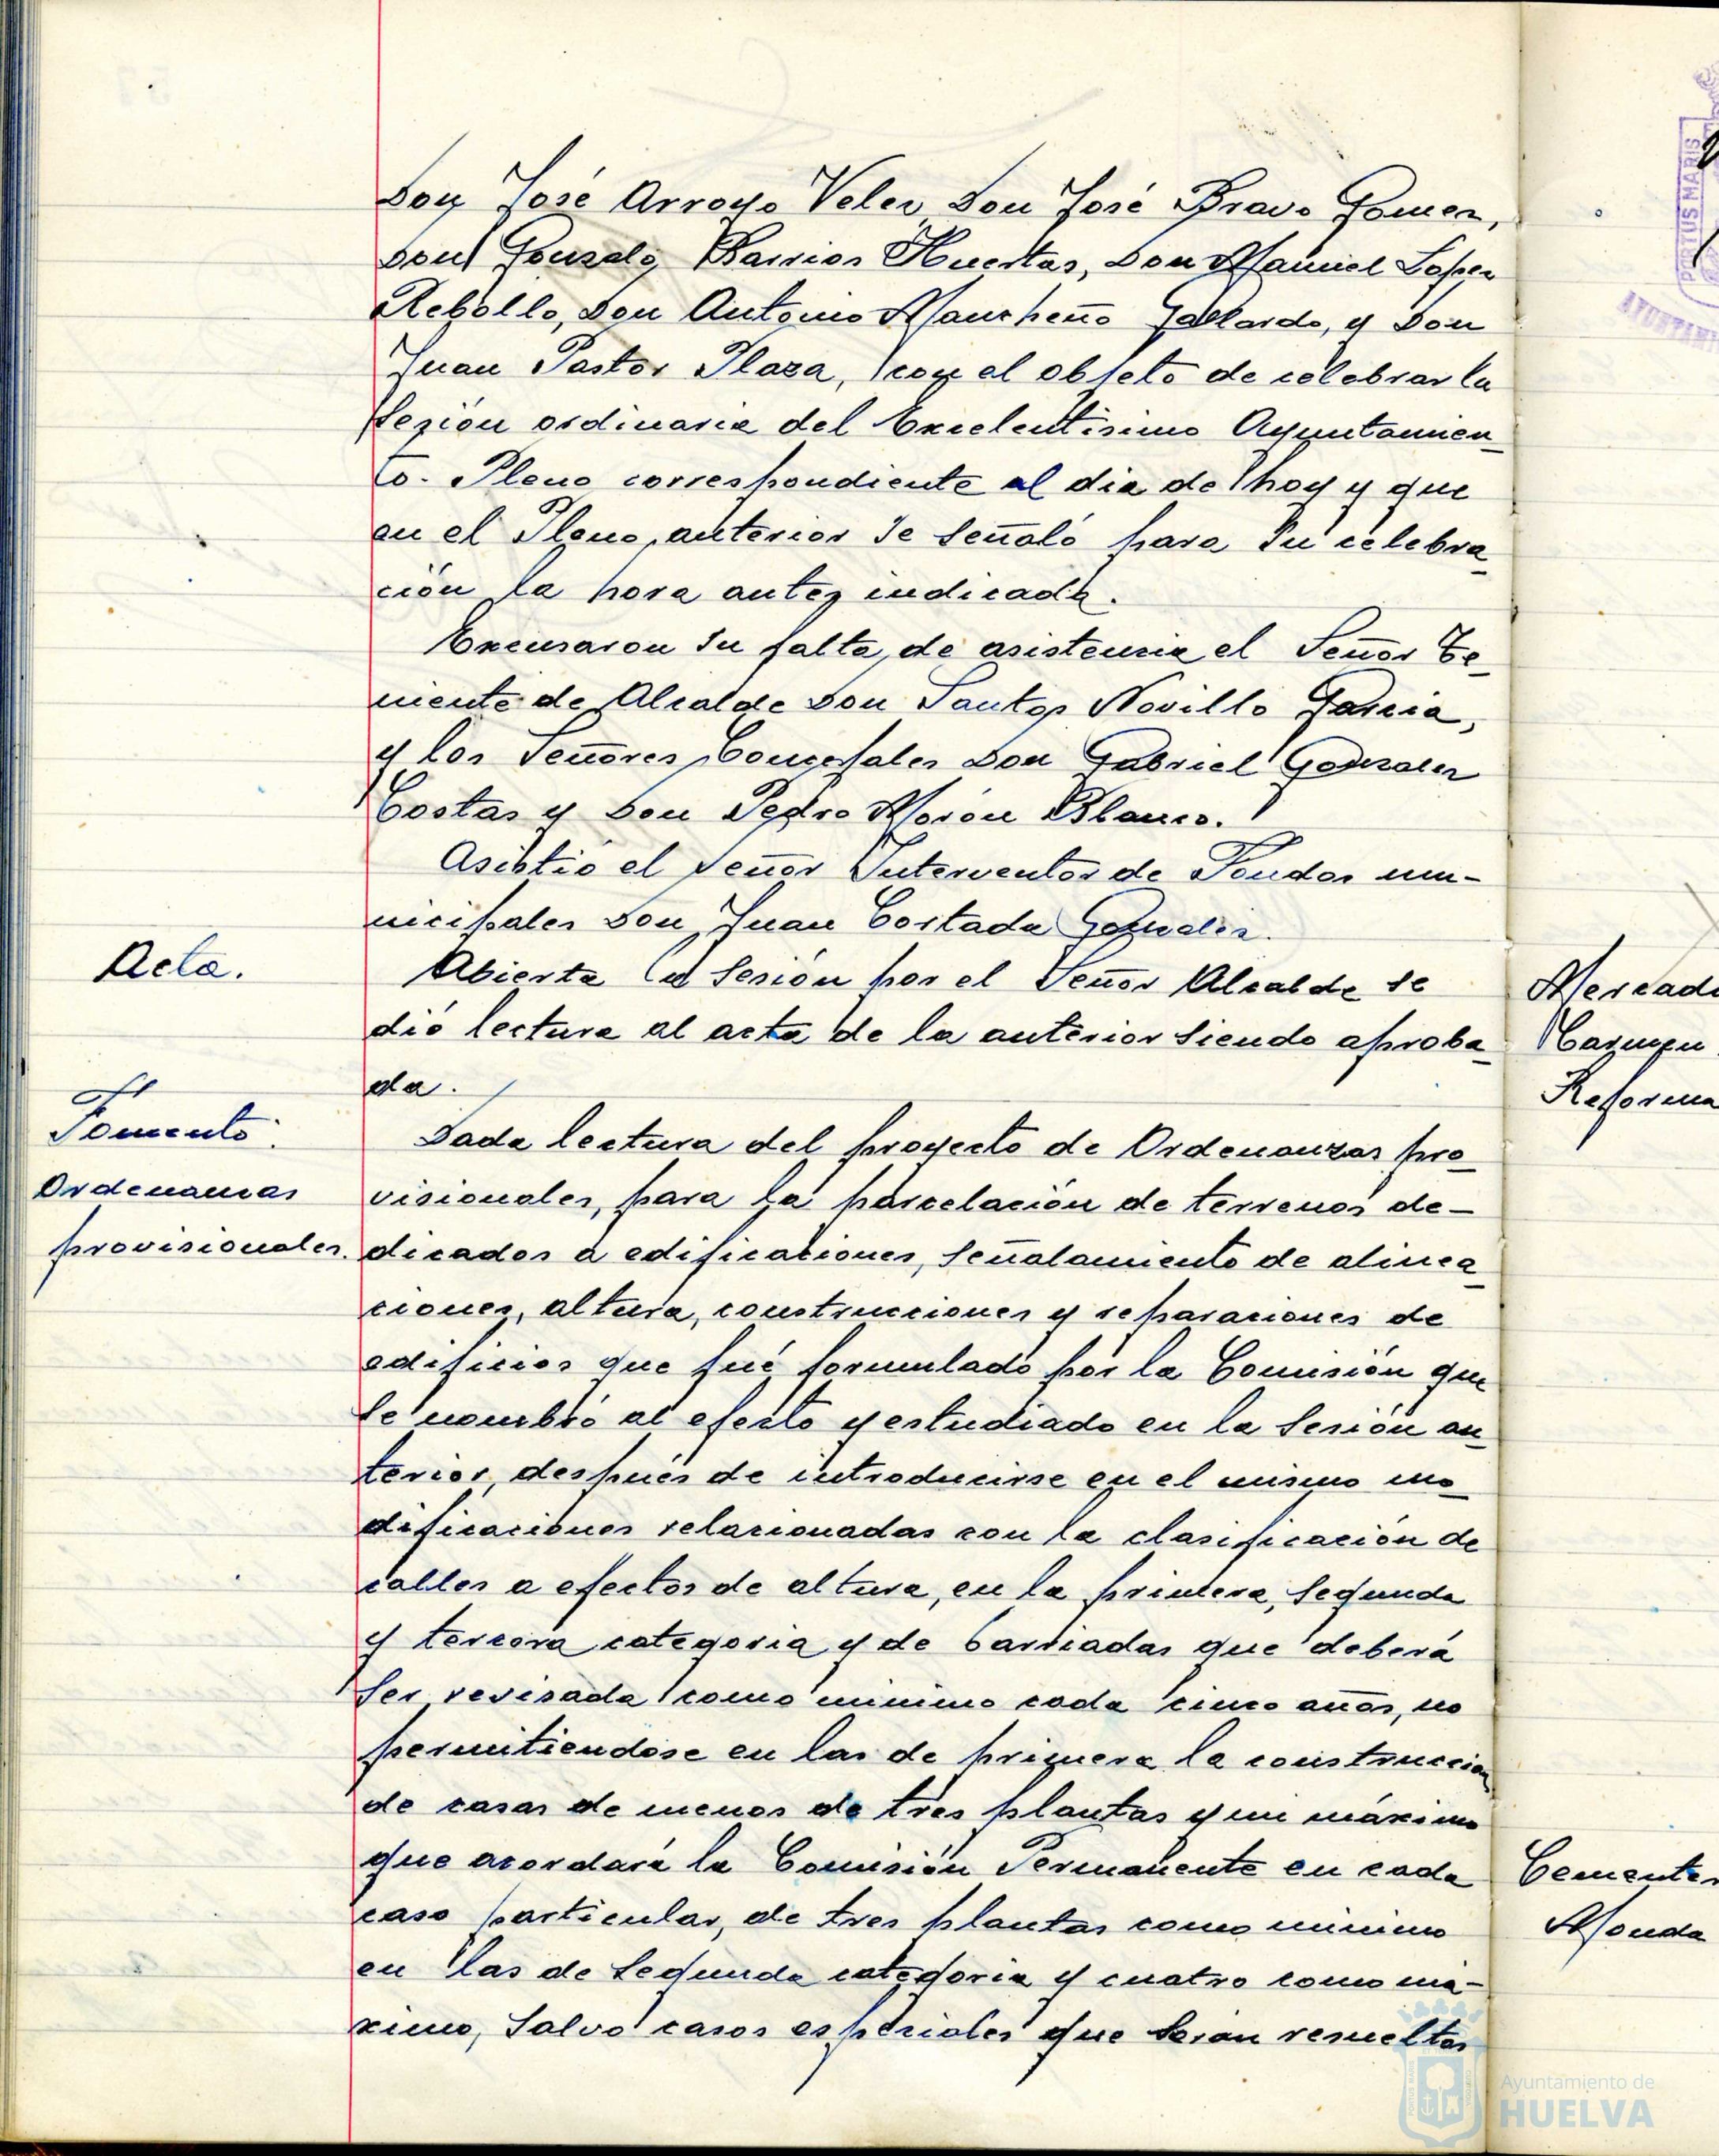 Don José Arroyo Velez Don José Bravo Gomez,
Don Gonzalo Barrios Huertas, Don Manuel Lopez
Rebollo, Don Antonio Mancheño Gallardo, y Don
Juan Pastor Plaza, con el objeto de celebrar la
Sesion ordinaria del Excelentisimo Ayuntamien_
to. Pleno correspondiente al dia de hoy y que
en el Pleno anterior se señaló para su celebra_
ción la hora antes indicada.
Excusaron su falta de asistencia el Señor Te_
niente de Alcalde Don Santos Novillo Garcia,
y los Señores Concejales Don Gabriel Gonzalez
Costas y Don Pedro Morón Blanco.
Asistió el Señor Interventor de Fondos mu-
nicipales Don Juan Cortada
Acta.
Abierta la Sesion por el Señor Alcalde se
dió lectura al acta de la anterior siendo aproba_
da.
Fomento.
Ordenanzas
provisionales.
Dada lectura del proyecto de Ordenanzas pro_
visionales, para la parcelación de terrenos de-
dicados a edificaciones, señalamiento de alinea_
ciones, altura, construcciones y reparaciones de
edificios que fué formulado por la Comisión que
se nombró al efecto y estudiado en la Sesión an_
terior, despues de introducirse en el mismo mo_
dificaciones relacionadas con la clasificación de
calles a efectos de altura, en la primera, segunda
y tercera categoria y de barriadas que deberá
ser revisada como minimo cada cinco años, no
permitiendose en las de primera la construccion
de casas de menos de tres plantas y un máximo
que acordará la Comisión Permanente en cada
caso particular, de tres plantas como minimo
en las de segunda categoria y cuatro como má-
ximo, salvo casos especiales que seran resueltos
Mercado
Carmen
Reforma
Cementer
Monda
PORTUS MARIS
Ayuntamiento de
HUELVA